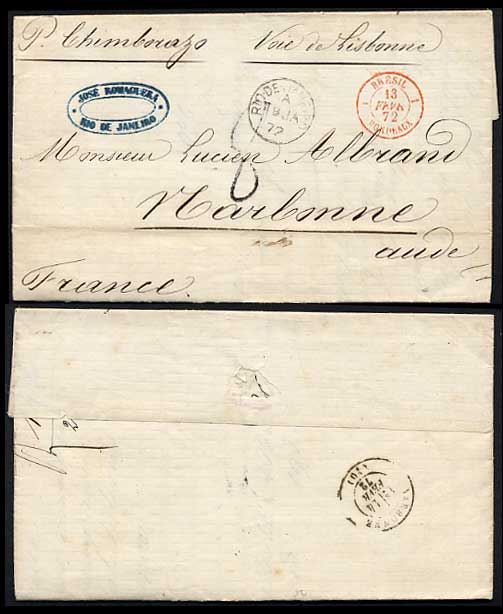 P. Chimborazo Voie de Lisbonne
JOSÉ ROMAGUERA
RIO DE JANEIRO
RIO DE JANEIRO
A
JA
72
1 BRÉSIL 1
13
FÉVR
72
BORDEAUX
8
Monsieur Lucien Albrand
Narbonne
aude
France
NARBONNE
FEVR
72